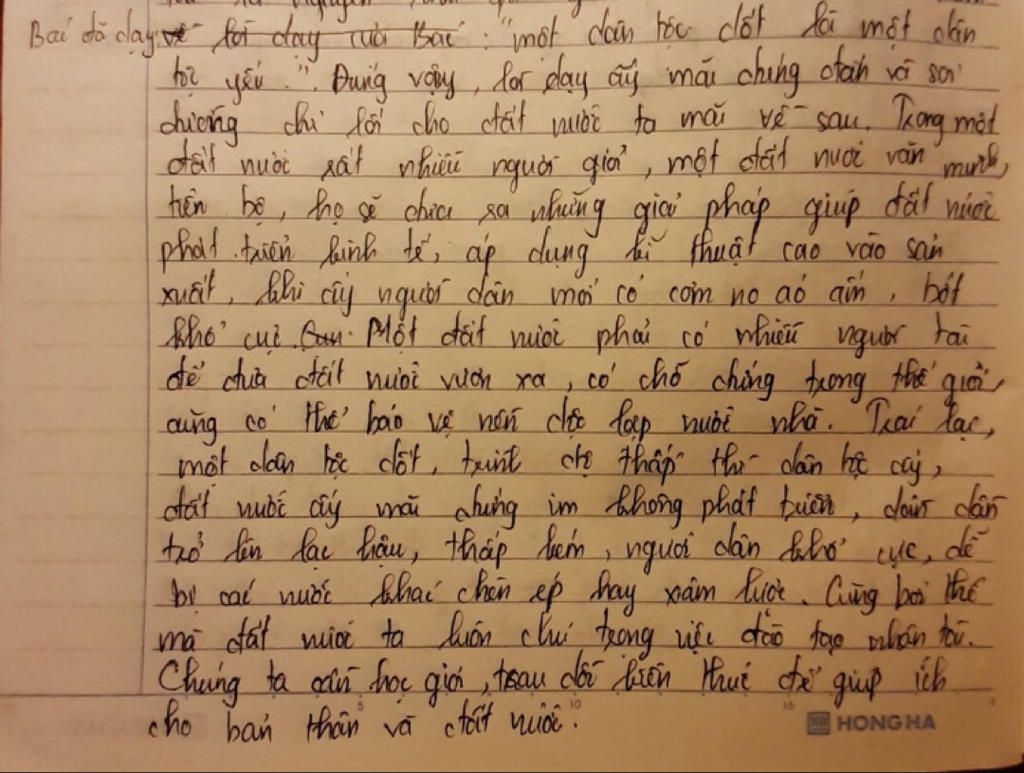 Bác đã dạy: về lời dạy của Bác: "một dân tộc dốt là một dân
tộc yếu". Đúng vậy, lời dạy ấy mãi chứng dánh và soi
đường chỉ lối cho đất nước ta mãi về sau. Trong một
đất nước rất nhiều người giỏi, một đất nước văn minh,
tiến bộ, họ sẽ đưa ra những giải pháp giúp đất nước
phát triển kinh tế, áp dụng kĩ thuật cao vào sản
xuất, khi ấy người dân mới có cơm no áo ấm, bớt
khổ cực. Một đất nước phải có nhiều người tài
để đưa đất nước vươn ra, có chỗ đứng trong thế giới,
cũng có thể bảo vệ nền độc lập nước nhà. Trái lại,
một dân tộc dốt, trình độ thấp thì dân tộc ấy,
đất nước ấy mãi đứng im không phát triển, dần dần
trở lên lạc hậu, thấp kém, người dân khổ cực, dễ
bị các nước khác chèn ép hay xâm lược. Cũng bởi thế
mà đất nước ta luôn chú trọng việc đào tạo nhân tài.
Chúng ta cần học giỏi, trau dồi kiến thức để giúp ích
cho bản thân và đất nước.
HONG HA